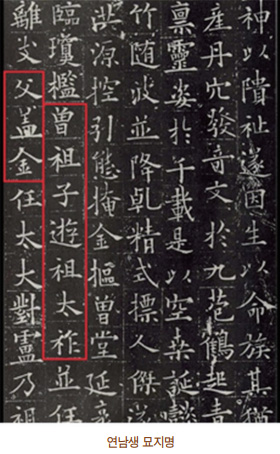 神以隤祉遂因生以命族其猶
産丹穴發奇文於九苞鶴起青
禀靈姿於千載是以空桑誕懿
竹随波並降乹精式標人傑
洪源控引態掩金樞曽堂延
臨瓊檻曽祖子遊祖太祚並任
離支父盖金任太大對盧乃祖
연남생 묘지명